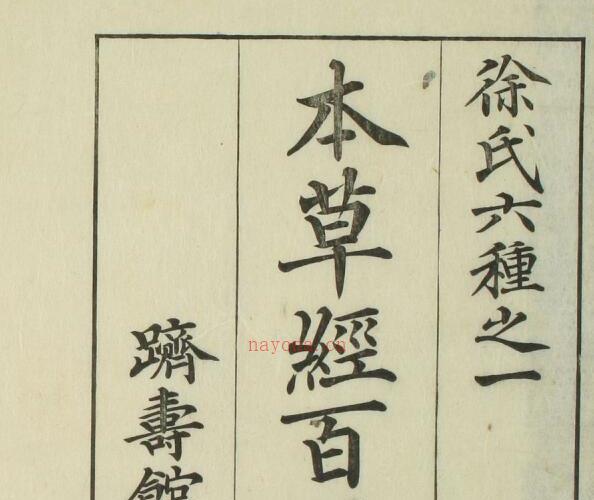 徐氏六種之一
本草經百
躋壽館
nayona.cn